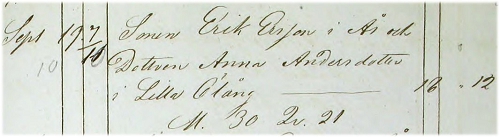 Sept 19 7/10 Sonen Erik Ersson i Ås och
10 Dottren Anna Andersdotter
i Lilla Öläng 18 " 12
M. 30 Qv. 21